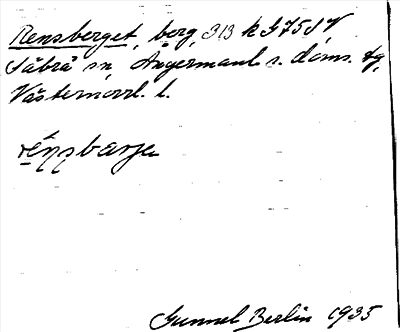 Rensberget, berg, 313 k G75SV
Säbrå sn, Ångermanl. s. doms. tg,
Västernorrl. l.
Gunnel Berlin 1935